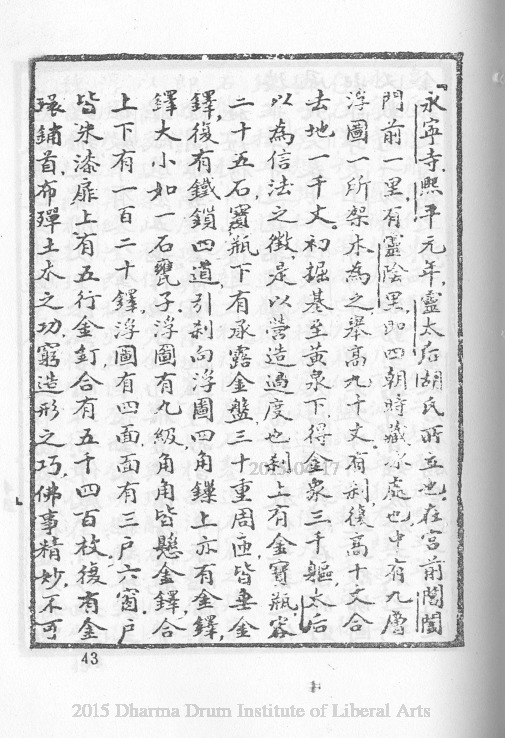 『永寧寺熙平元年靈太后胡氏所立也在宮前閶闔
門前一里有靈陰里即四朝時藏冰處也中有九層
浮圖一所架木為之舉高九十丈有剎復高十丈合
去地一千丈初掘基至黃泉下得金象三千軀太后
以為信法之徵是以營造過度也剎上有金寶瓶容
二十五石寶瓶下有承露金盤三十重周匝皆垂金
鐸復有鐵鎖四道引剎向浮圖四角鏁上亦有金鐸
鐸大小如一石甕子浮圖有九級角角皆懸金鐸合
上下有一百二十鐸浮圖有四面面有三戶六窗戶
皆朱漆扉上有五行金釘合有五千四百枚復有金
環鋪首布殫土木之功窮造形之巧佛事精妙不可
43
2015-04-17
2015 Dharma Drum Institute of Liberal Arts